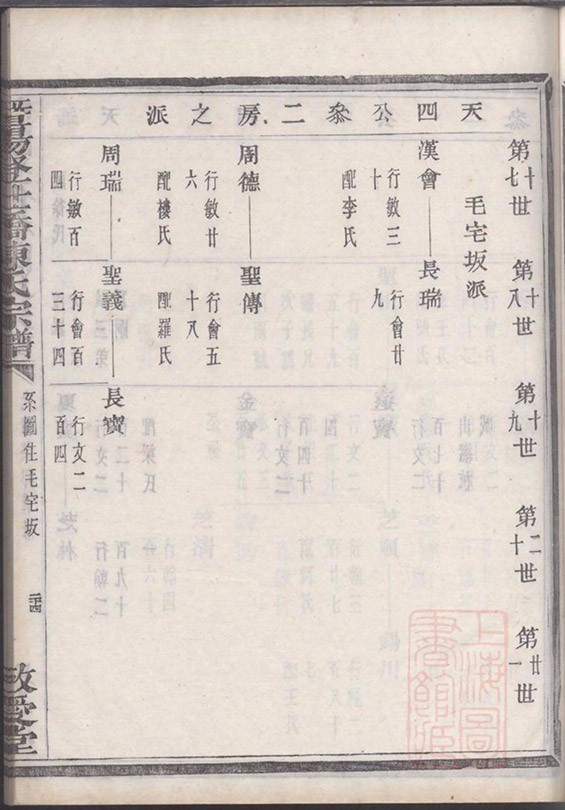 第十七世
第十八世
第十九世
第二十世
第廿一世
天四公叅二房之派
毛宅坂派
漢會 長瑞
行敏三十
配李氏
行會廿九
周德 聖傳
行敏廿六
配樓氏
行會五十八
配羅氏
周瑞 聖義 長寶
行敏百四
行會百三十四
行文二百四
陳氏宗譜
系圖 住毛宅坂
敬愛堂
上海圖書館藏